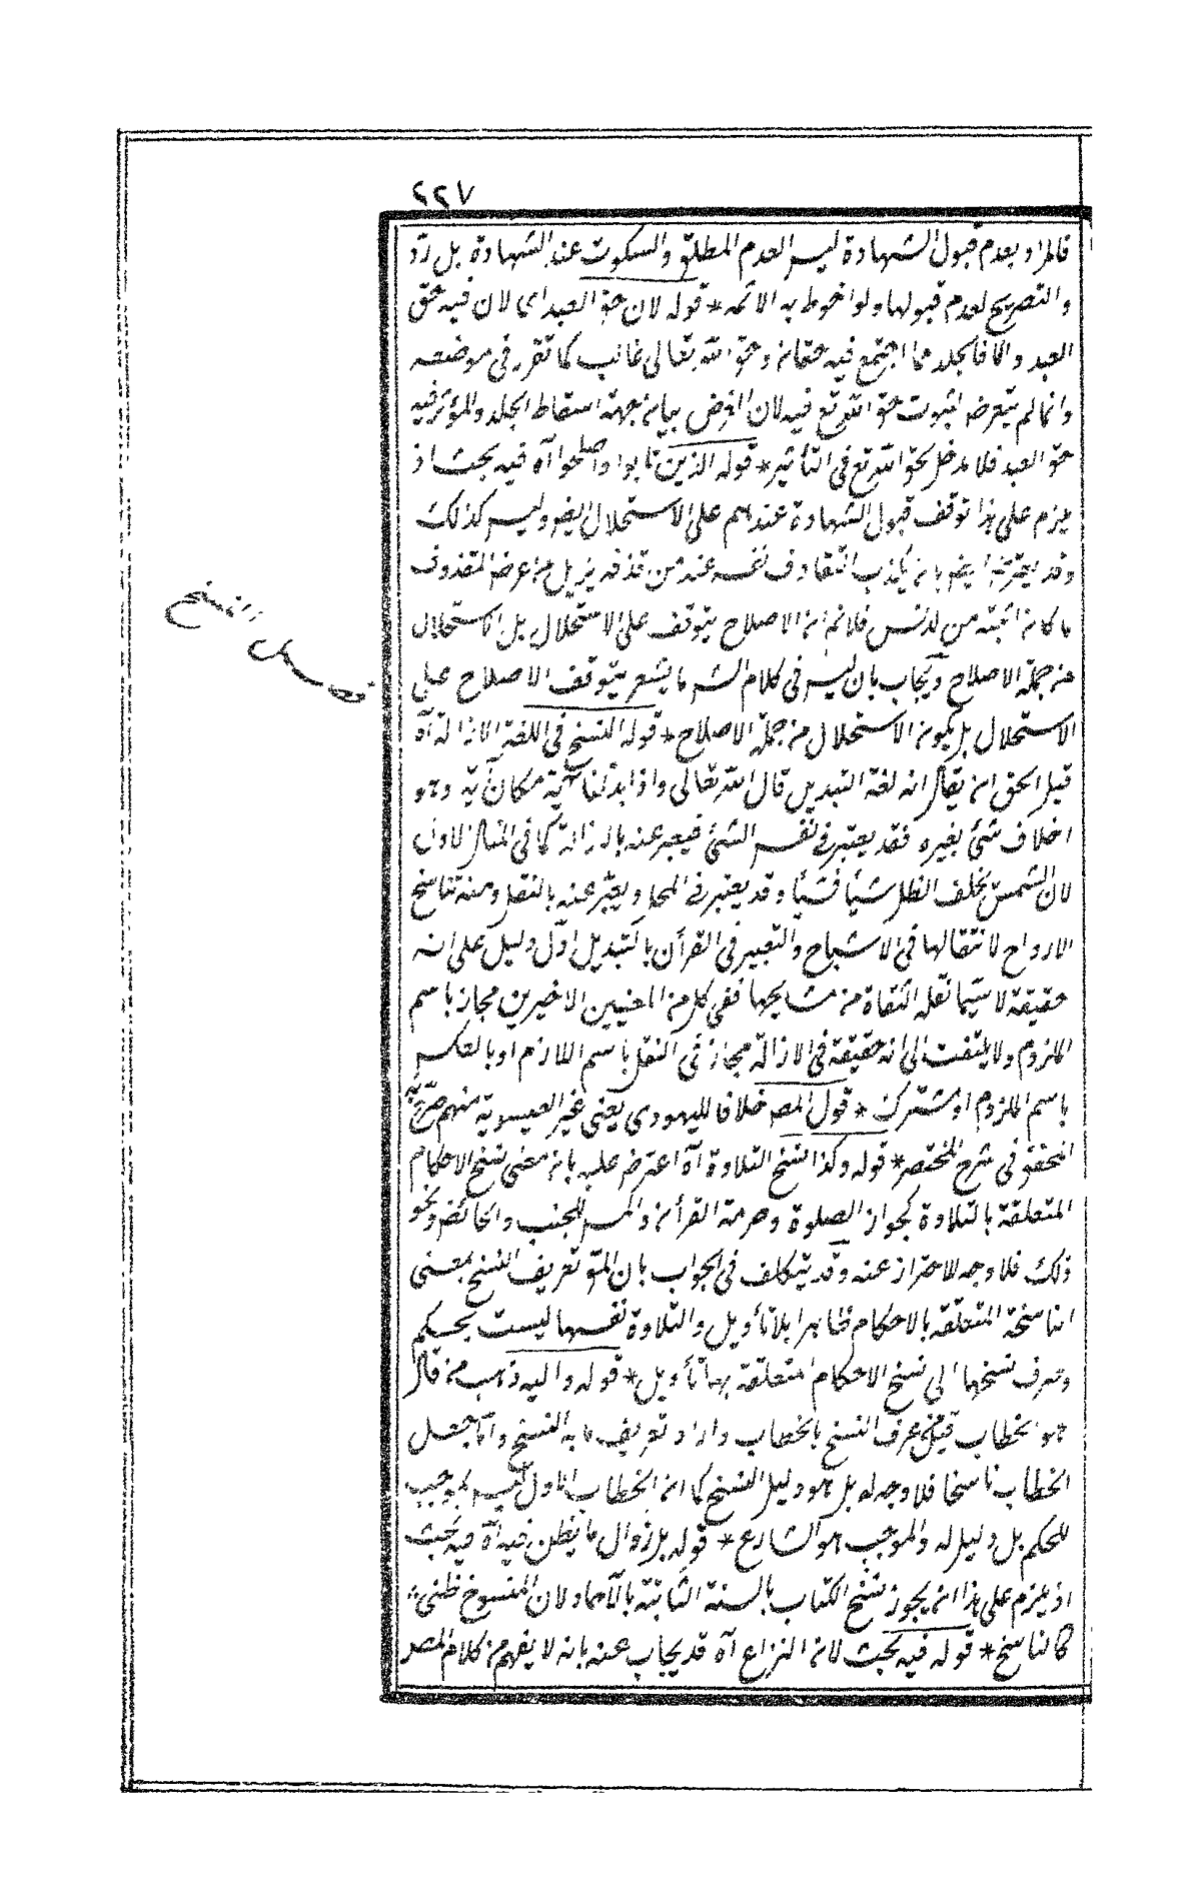 ٢٢٧
فالمراد بعدم قبول الشهادة ليس العدم المطلق والسكوت عند الشهادة بل رد
والتصريح لعدم قبولها ولو اخوطب به الائمه * قوله لان حق العبد اى لان فيه حق
العبد والا فالجلد مما اجتمع فيه حقان وحق الله تعالى غالب كما تقرر فى موضعه
وانما لم يتعرض لثبوت حق الله تع فيه لان الغرض بيان جهة اسقاط الجلد والمؤثر فيه
حق العبد فلا مدخل لحق الله تع فى التأثير * قوله الذين تابوا واصلحوا آه فيه بحث اذ
يلزم على هذا توقف قبول الشهادة عندهم على الاستحلال ايضا وليس كذلك
وقد بان يكذب القاذف نفسه عند من قذفه يزيل من عرض المقذوف
ما كان اثبته من لدنس فلانم ان الاصلاح يتوقف على الاستحلال بل الاستحلال
من جملة الاصلاح ويجاب بان ليس فى كلام الشر ما يشعر بتوقف الاصلاح على
الاستحلال بل بكون الاستحلال من جملة الاصلاح * قوله النسخ فى اللغة الازالة آه
قيل الحق ان يقال انه لغة التبديل قال الله تعالى واذا بدلنا آية مكان آية وهو
اخلاف شئ بغيره فقد يعتبر فى نفس الشئ فيعبر عنه بالازالة كما فى المثال الاول
لان الشمس يخلف الظل شيأ فشيأ وقد يعتبر فى المحل ويعبر عنه بالنقل ومنه تناسخ
الارواح لانتقالها فى الاشباح والتعبير فى القرأن بالتبديل اول دليل على انه
حقيقة لا سيما نقله الثقاة من مشايخها ففى كل من المعنيين الاخيرين مجاز باسم
الملزوم ولا يلتفت الى انه حقيقة فى الازالة مجاز فى النقل باسم اللازم او بالعكس
باسم الملزوم او مشترك * قول المص خلافا لليهودى يعنى غير العيسوية منهم صرح به
المحقق فى شرح المختصر * قوله وكذا نسخ التلاوة آه اعترض عليه بان معنى نسخ الاحكام
المتعلقة بالتلاوة كجواز الصلوة وحرمة القرأن والمس للجنب والحائض ونحو
ذلك فلا وجه للاحتراز عنه وقد يتكلف فى الجواب بان المق تعريف النسخ بمعنى
الناسخة المتعلقة بالاحكام ظاهرا بلا تأويل والتلاوة نفسها ليست بحكم
وصرف نسخها الى نسخ الاحكام المتعلقة بها تأويل * قوله واليه ذهب من قال
هو الخطاب قيل من عرف النسخ بالخطاب واراد تعريف ما به النسخ وانما جعل
الخطاب ناسخا فلا وجه له بل هو دليل النسخ كما ان الخطاب الاول ليس بموجب
للحكم بل دليل له والموجب هو الشارع * قوله بل زوال ما يظن فيه آه فيه بحث
اذ يلزم على هذا ان يجوز نسخ الكتاب بالسنة الثابتة بالآحاد لان المنسوخ ظنى
كالناسخ * قوله فيه بحث لان النزاع آه قد يجاب عنه بانه لا يفهم من كلام المص
فصل النسخ